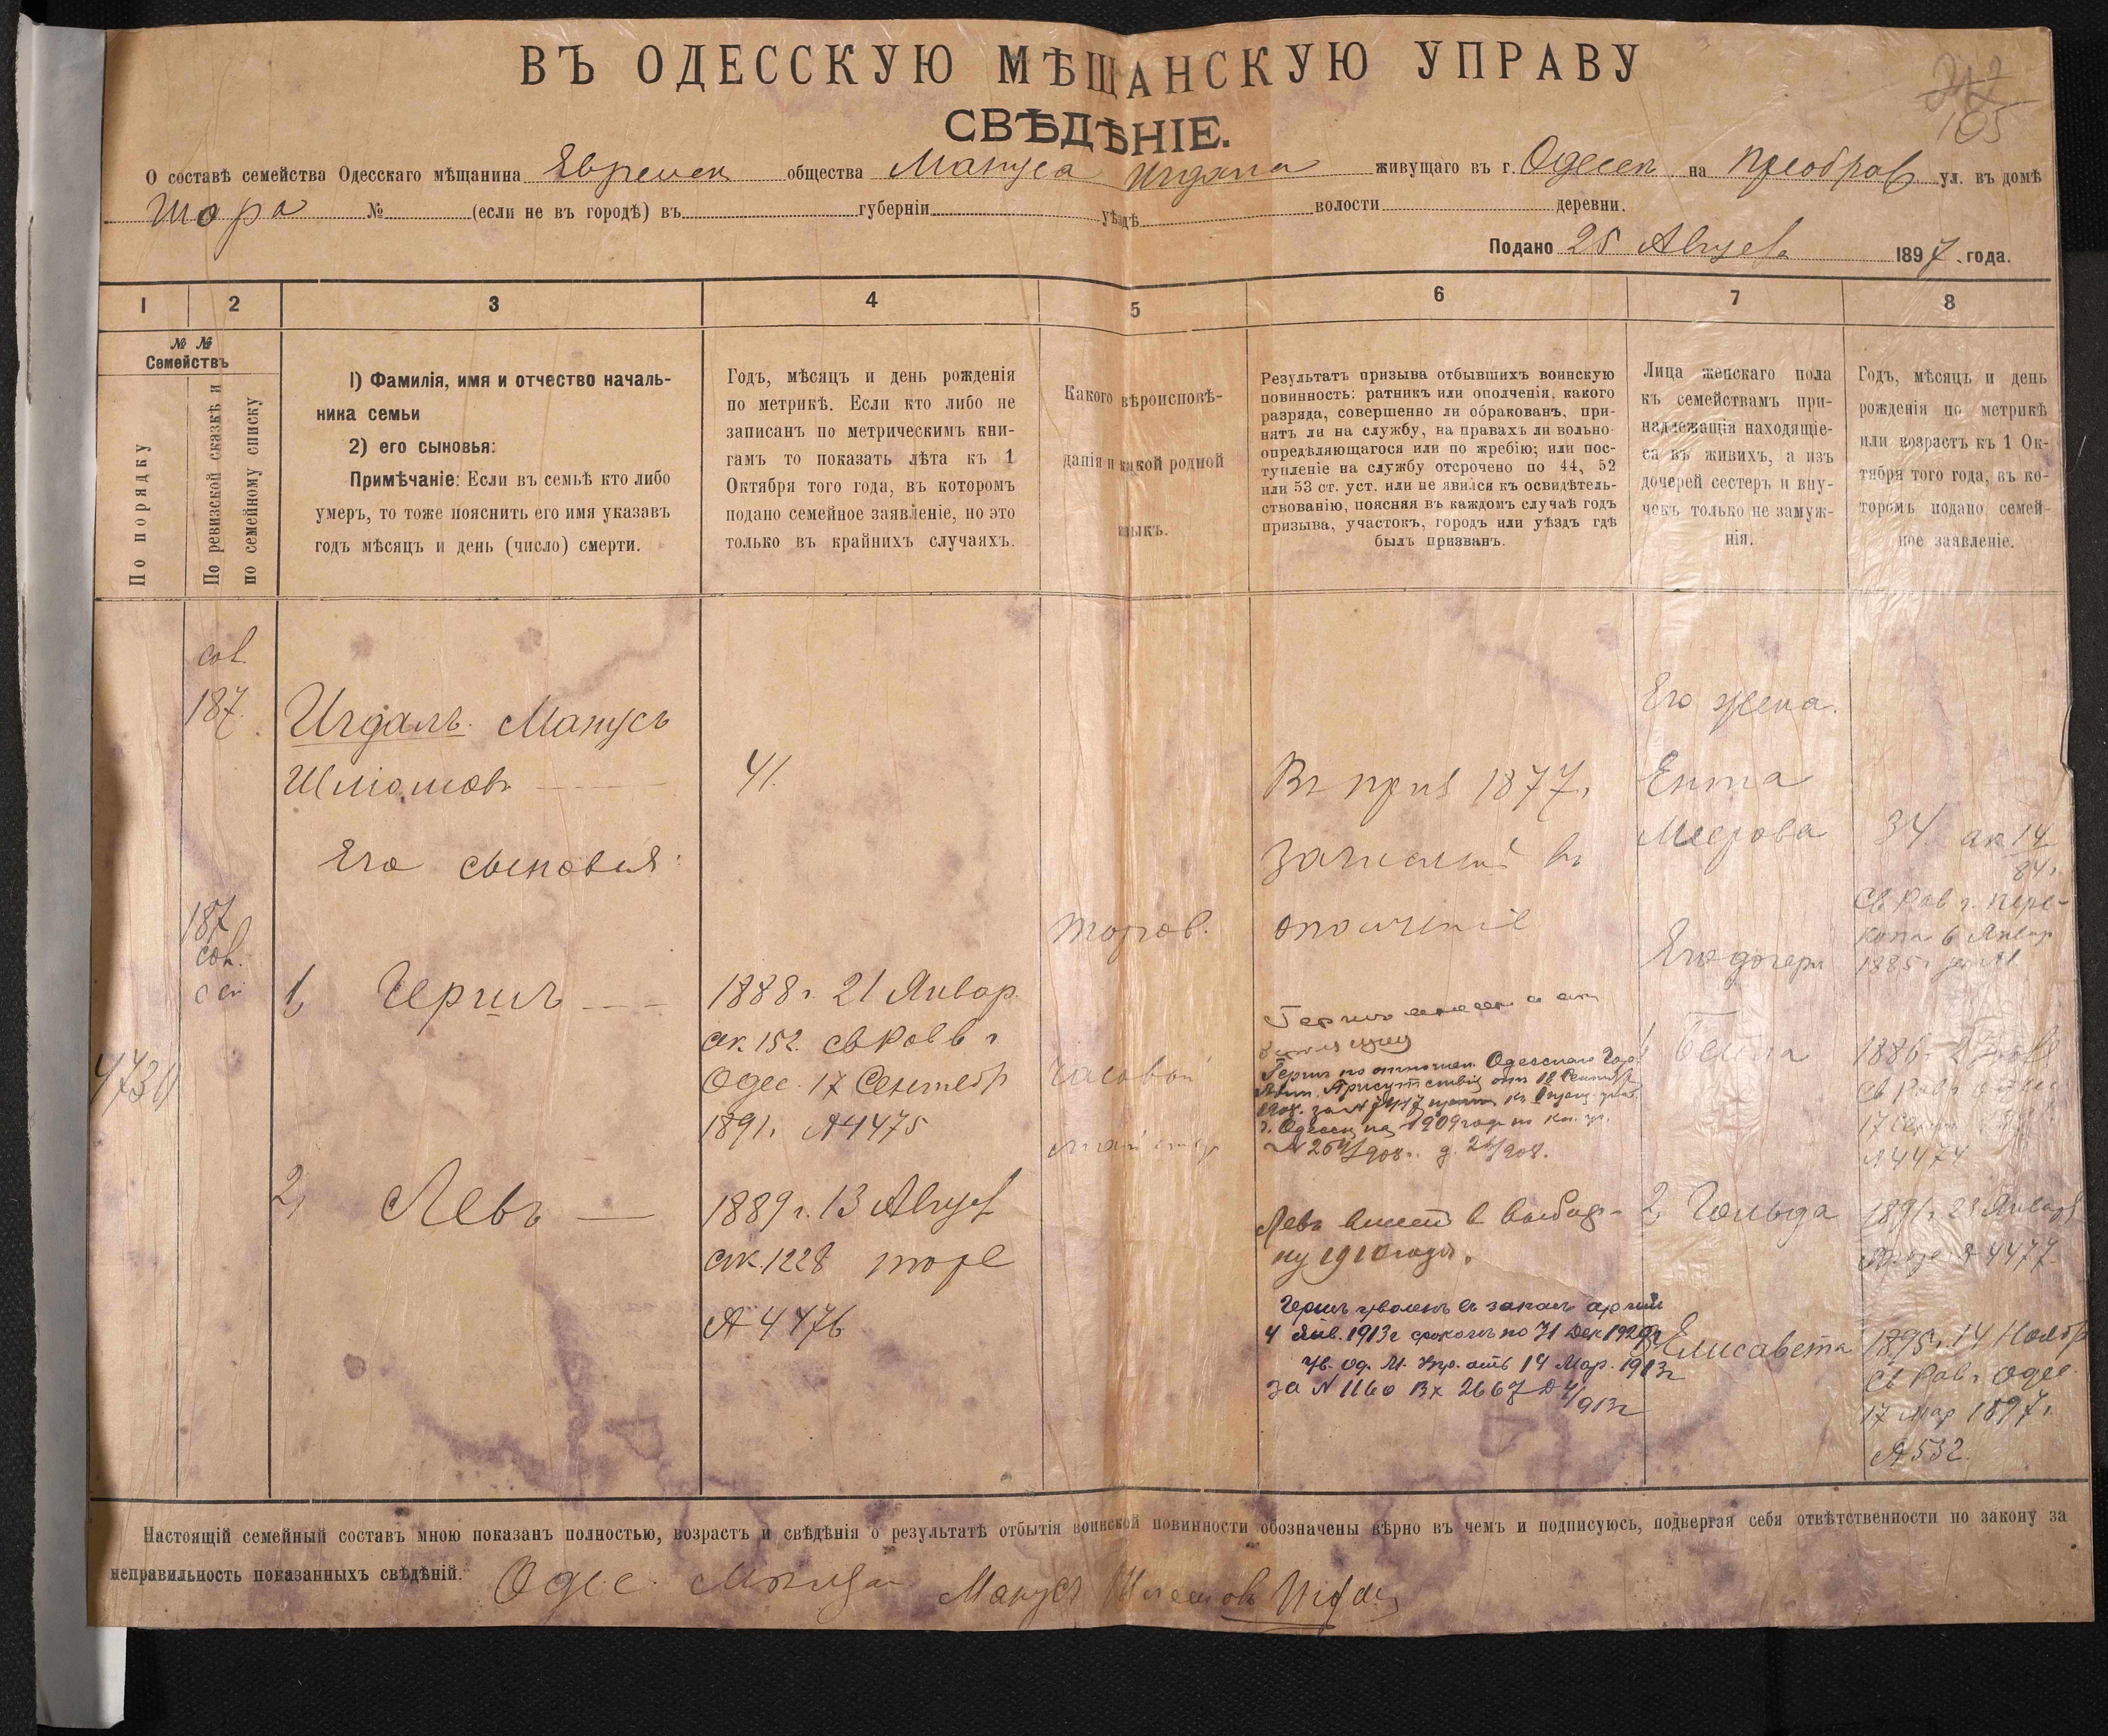 ВЪ ОДЕССКУЮ МѢЩАНСКУЮ УПРАВУ
СВѢДѢНІЕ.
105
О составѣ семейства Одесскаго мѣщанина Еврейск общества Мануса Игдала живущаго въ г. Одессѣ на Преображ ул. въ домѣ
Шора № (если не въ городѣ) въ губерніи уѣздѣ волости деревни.
Подано 25 Августа 1897 года.
1 2 3 4 5 6 7 8
№ №
Семействъ
По порядку
По ревизской сказкѣ и
по семейному списку
1) Фамилія, имя и отчество началь-
ника семьи
2) его сыновья:
Примѣчаніе: Если въ семьѣ кто либо
умеръ, то тоже пояснить его имя указавъ
годъ мѣсяцъ и день (число) смерти.
Годъ, мѣсяцъ и день рожденія
по метрикѣ. Если кто либо не
записанъ по метрическимъ кни-
гамъ то показать лѣта къ 1
Октября того года, въ которомъ
подано семейное заявленіе, но это
только въ крайнихъ случаяхъ.
Какого вѣроисповѣ-
данія и какой родной
языкъ.
Результатъ призыва отбывшихъ воинскую
повинность: ратникъ или ополченія, какого
разряда, совершенно ли обракованъ, при-
нятъ ли на службу, на правахъ ли вольно-
опредѣляющагося или по жребію; или пос-
тупленіе на службу отсрочено по 44, 52
или 53 ст. уст. или не явился къ освидѣтель-
ствованію, поясняя въ каждомъ случаѣ годъ
призыва, участокъ, городъ или уѣздъ гдѣ
былъ призванъ.
Лица женскаго пола
къ семействамъ при-
надлежащія находящіе-
ся въ живихъ, а изъ
дочерей сестеръ и вну-
чокъ только не замуж-
нія.
Годъ, мѣсяцъ и день
рожденія по метрикѣ
или возрастъ къ 1 Ок-
тября того года, въ ко-
торомъ подано семей-
ное заявленіе.
187
Игдалъ Манусъ
Шліомовъ
41.
Его сыновья:
187
1, Гершъ
1888 г. 21 Январ
ак. 152. св Рав в г
Одес. 17 Сентябр
1891 г. № 4475
2, Левъ
1889 г. 13 Август
ак. 1228 тоже
№ 4476
торгов.
часовой
Въ приз 1877 г.
зачислен въ
ополченіе
Гершъ по отношен. Одесскаго Гор
Воин. Присутствія отъ 18 Сентябр
г. Одессы на 1909 годъ
Левъ внесен в
1910 года.
Гершъ уволенъ въ запас арміи
4 Янв. 1913 г срокомъ по 31 Дек
Ув. Од. М. Упр. отъ 14 Мар. 1913 г
за № 1160 Вх 2667 Д 4/913 г
Его жена.
Ента
Меерова
34 ак 14
84 г.
Св Рав г. Пере-
копа 6 Январ
1885 г
Его дочери
1 Бейла
1886 г.
№ 4474
2, Гольда
1891 г. 23 Января
№ 4477
Елисавета
1895 г. 14 Ноябр
св Рав г Одес.
17 Мар 1897 г.
№ 532.
Настоящій семейный составъ мною показанъ полностью, возрастъ и свѣдѣнія о результатѣ отбытія воинской повинности обозначены вѣрно въ чемъ и подписуюсь, подвергая себя отвѣтственности по закону за
неправильность показанныхъ свѣдѣній. Одес. Манусъ Шлемовъ Игдал